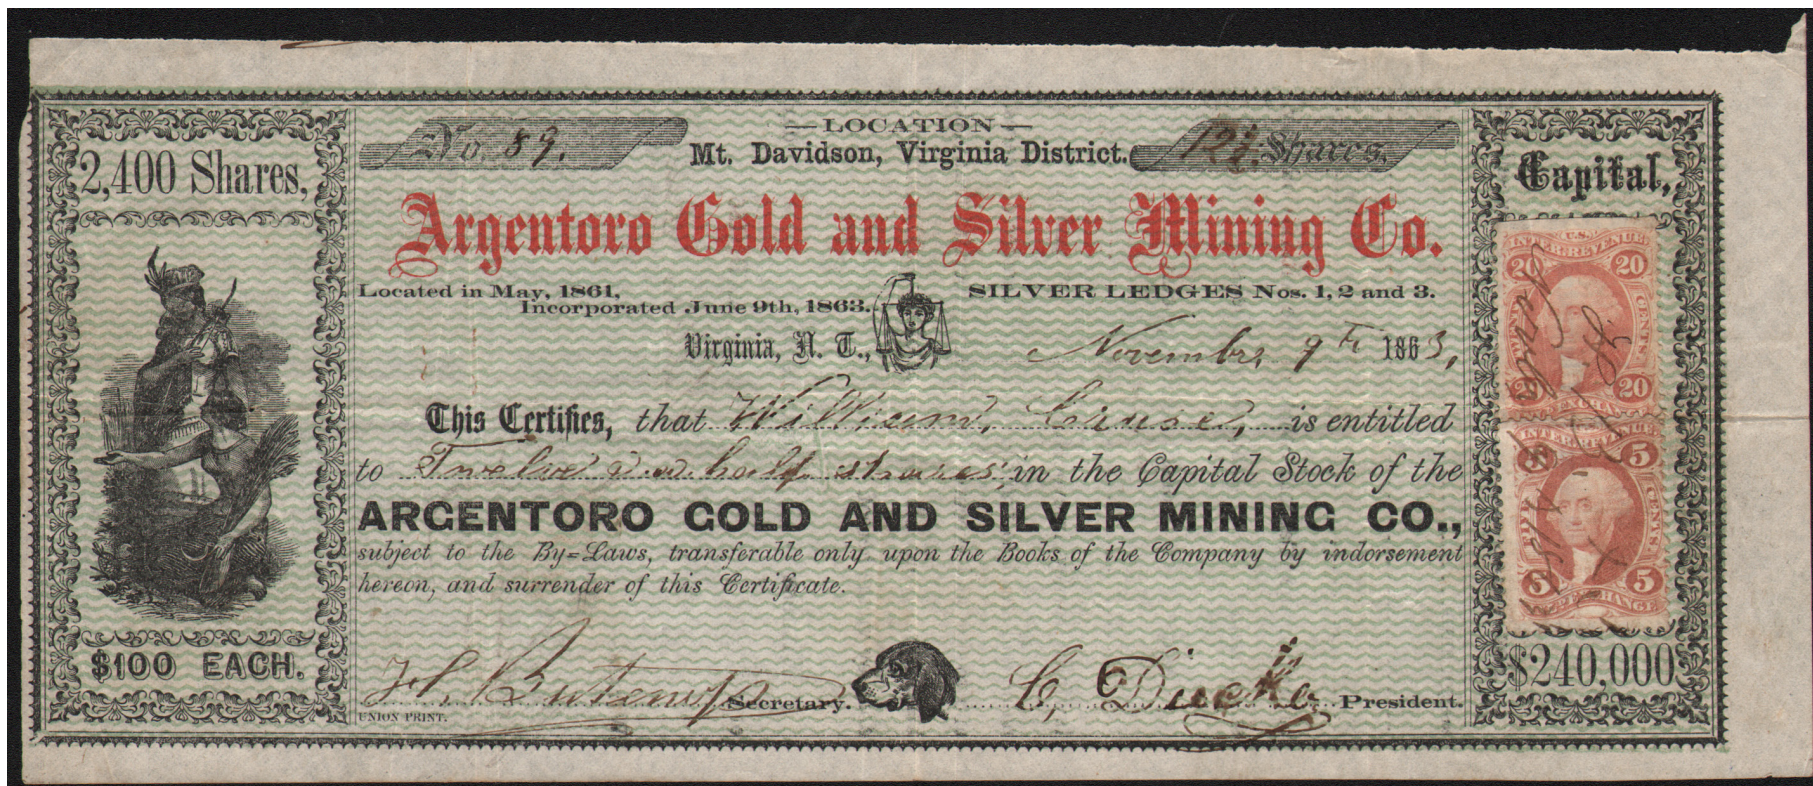 No. 89.
— LOCATION —
Mt. Davidson, Virginia District.
12½ Shares.
2,400 Shares,
Capital,
Argentoro Gold and Silver Mining Co.
Located in May, 1861,
Incorporated June 9th, 1863.
SILVER LEDGES Nos. 1, 2 and 3.
Virginia, N. T., Novembr, 9th 1863,
This Certifies, that William, Cruse, is entitled
to Twelve & a half shares, in the Capital Stock of the
ARGENTORO GOLD AND SILVER MINING CO.,
subject to the By=Laws, transferable only upon the Books of the Company by indorsement
hereon, and surrender of this Certificate.
$100 EACH.
Secretary.
President.
UNION PRINT.
U.S.
INTER.REVENUE
20 20
TWENTY CENTS
20 20
INTER.REVENUE
5
FIVE CENTS.
5 5
$240,000